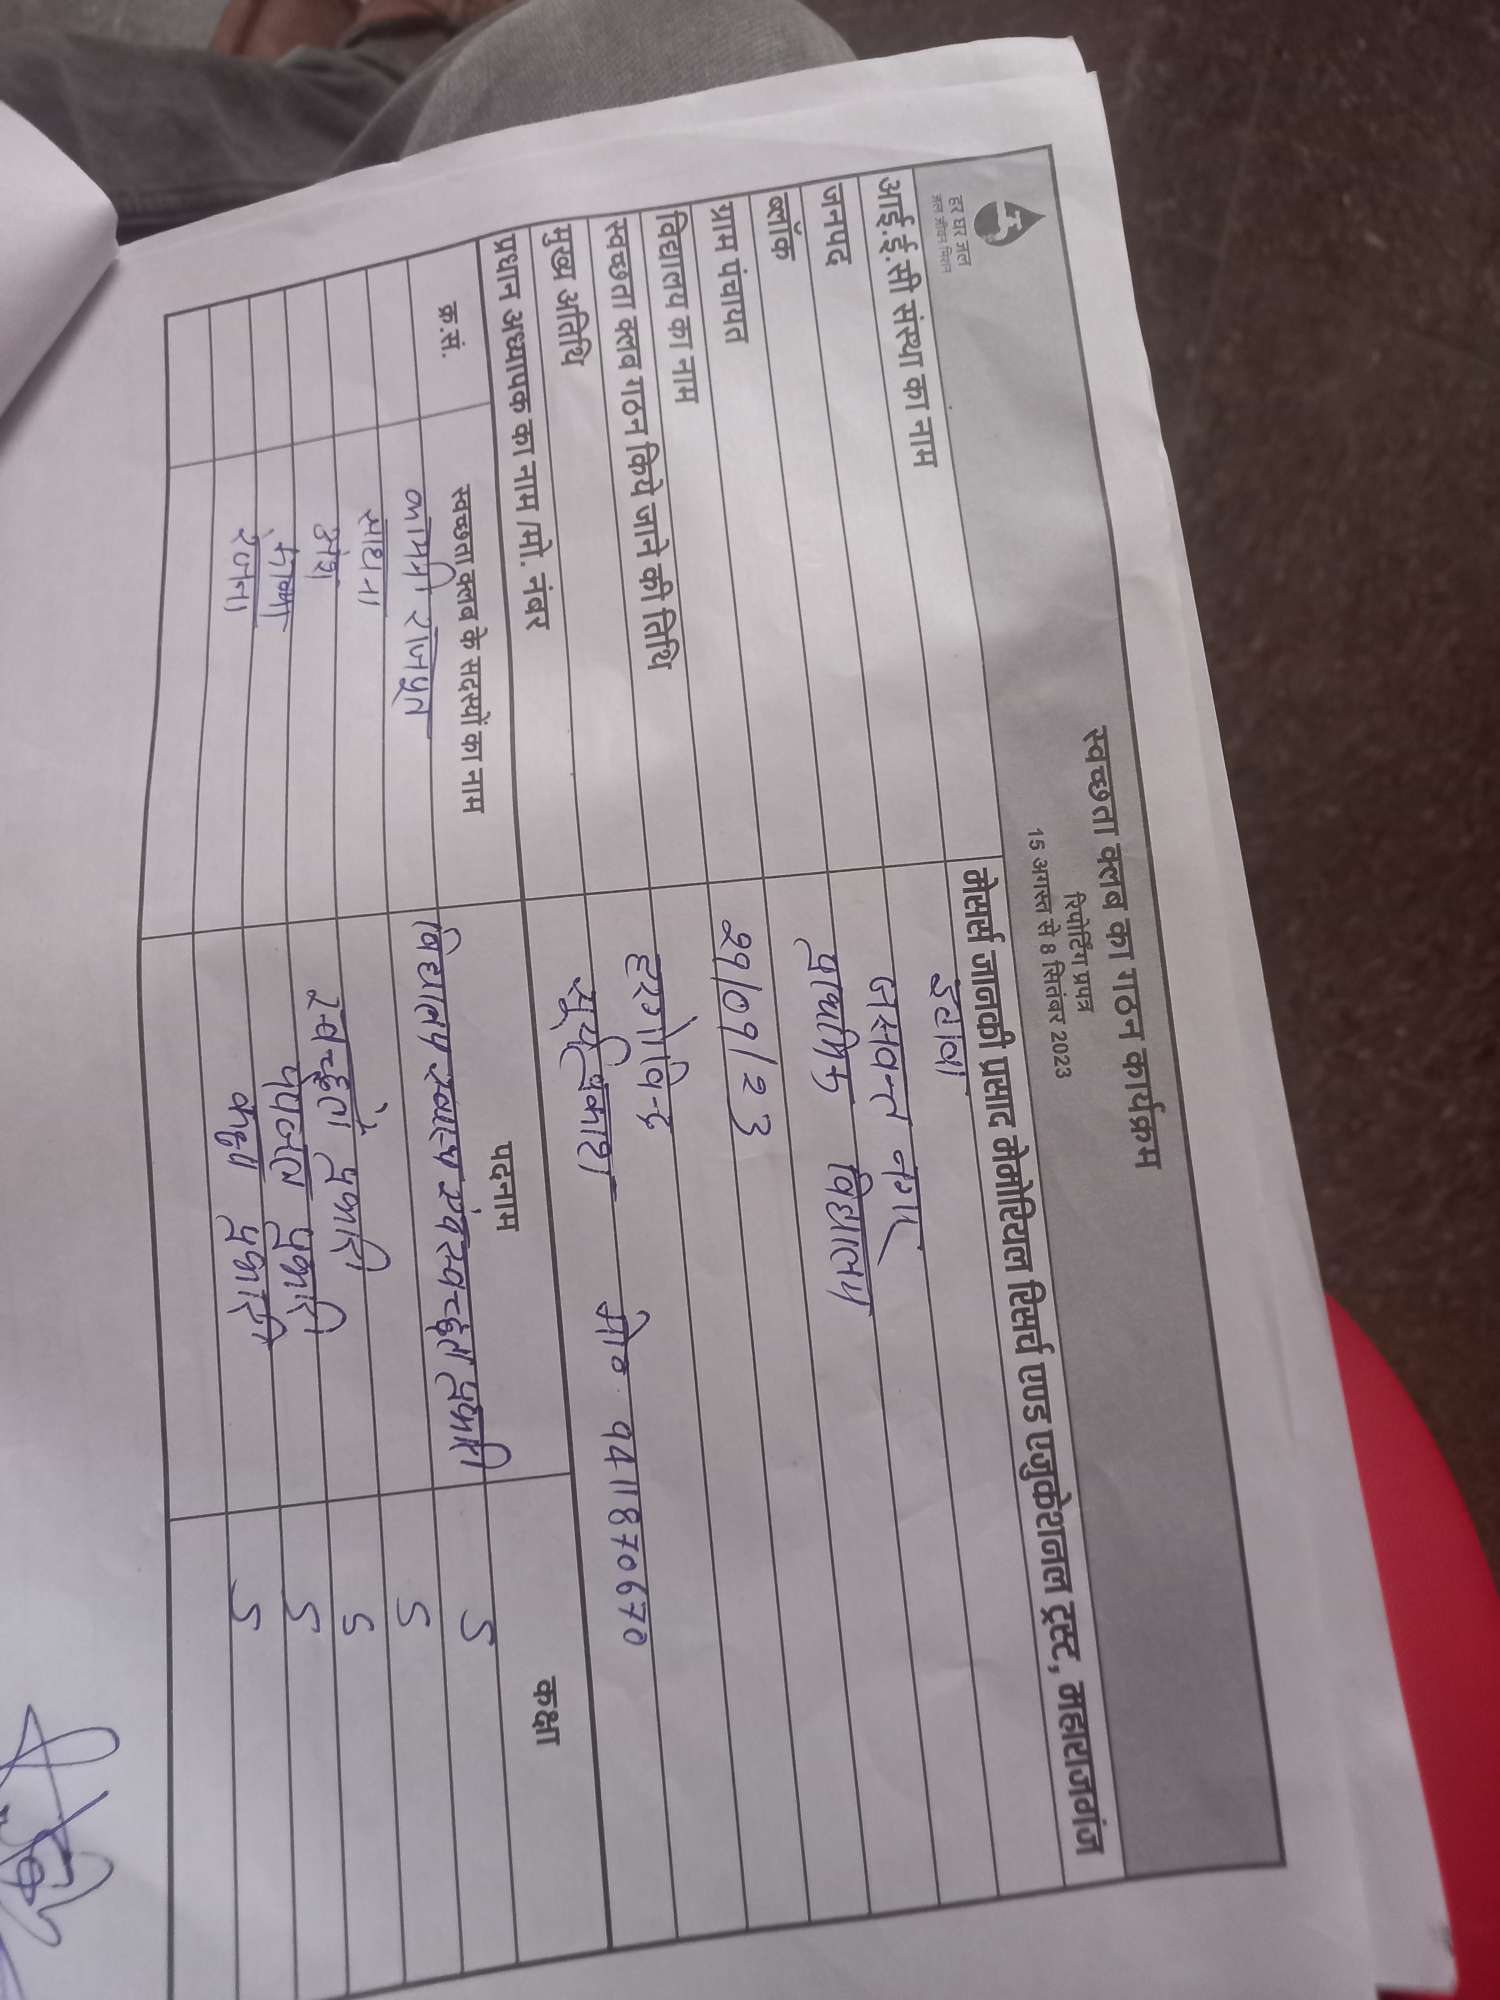 हर घर जल
जल जीवन मिशन
स्वच्छता क्लब का गठन कार्यक्रम
रिपोर्टिंग प्रपत्र
15 अगस्त से 8 सितंबर 2023
आई.ई.सी संस्था का नाम मेसर्स जानकी प्रसाद मेमोरियल रिसर्च एण्ड एजुकेशनल ट्रस्ट, महाराजगंज
जनपद इटावा
ब्लॉक जसवन्त नगर
ग्राम पंचायत
विद्यालय का नाम प्राथमिक विद्यालय
स्वच्छता क्लब गठन किये जाने की तिथि 29/09/23
मुख्य अतिथि हरगोविन्द
प्रधान अध्यापक का नाम /मो. नंबर सूर्य प्रकाश मो० 9411870670
क्र.सं. स्वच्छता क्लब के सदस्यों का नाम पदनाम कक्षा
कामिनी राजपूत विद्यालय स्वास्थ्य एंव स्वच्छता प्रभारी 5
साधना 5
अंश स्वच्छता प्रभारी 5
पेयजल प्रभारी 5
रंजना कचरा प्रभारी 5